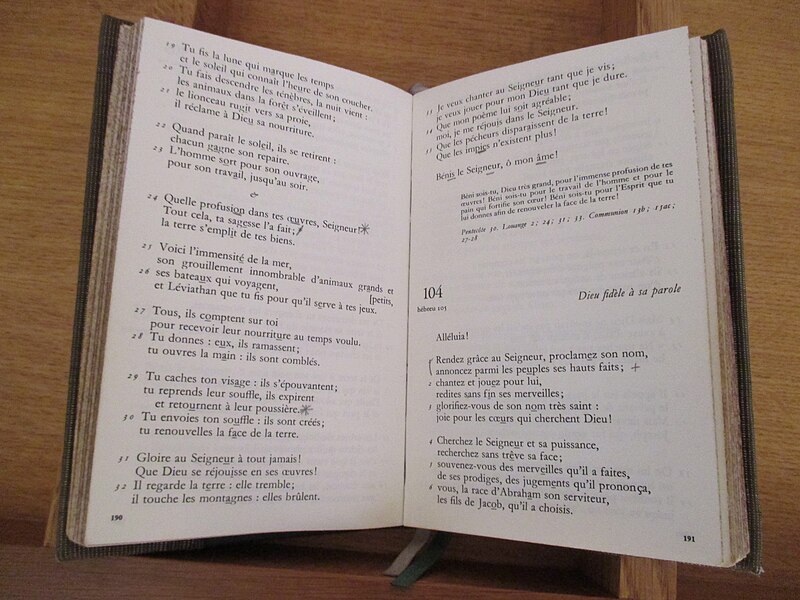 19 Tu fis la lune qui marque les temps
et le soleil qui connaît l'heure de son coucher.
20 Tu fais descendre les ténèbres, la nuit vient :
les animaux dans la forêt s'éveillent ;
21 le lionceau rugit vers sa proie,
il réclame à Dieu sa nourriture.
22 Quand paraît le soleil, ils se retirent :
chacun gagne son repaire.
23 L'homme sort pour son ouvrage,
pour son travail, jusqu'au soir.
24 Quelle profusion dans tes œuvres, Seigneur ! *
Tout cela, ta sagesse l'a fait ;
la terre s'emplit de tes biens.
25 Voici l'immensité de la mer,
son grouillement innombrable d'animaux grands et
[petits,
26 ses bateaux qui voyagent,
et Léviathan que tu fis pour qu'il serve à tes jeux.
27 Tous, ils comptent sur toi
pour recevoir leur nourriture au temps voulu.
28 Tu donnes : eux, ils ramassent ;
tu ouvres la main : ils sont comblés.
29 Tu caches ton visage : ils s'épouvantent ;
tu reprends leur souffle, ils expirent
et retournent à leur poussière. *
30 Tu envoies ton souffle : ils sont créés ;
tu renouvelles la face de la terre.
31 Gloire au Seigneur à tout jamais !
Que Dieu se réjouisse en ses œuvres !
32 Il regarde la terre : elle tremble ;
il touche les montagnes : elles brûlent.
190
33 Je veux chanter au Seigneur tant que je vis ;
je veux jouer pour mon Dieu tant que je dure.
34 Que mon poème lui soit agréable ;
moi, je me réjouis dans le Seigneur.
35 Que les pécheurs disparaissent de la terre !
Que les impies n'existent plus !
Bénis le Seigneur, ô mon âme !
Béni sois-tu, Dieu très grand, pour l'immense profusion de tes
œuvres ! Béni sois-tu pour le travail de l'homme et pour le
pain qui fortifie son cœur ! Béni sois-tu pour l'Esprit que tu
lui donnes afin de renouveler la face de la terre !
Pentecôte 30. Louange 2 ; 24 ; 31 ; 33. Communion 13b ; 15ac ;
27-28
104
hébreu 105
Dieu fidèle à sa parole
Alléluia !
1 Rendez grâce au Seigneur, proclamez son nom,
annoncez parmi les peuples ses hauts faits ; +
2 chantez et jouez pour lui,
redites sans fin ses merveilles ;
3 glorifiez-vous de son nom très saint :
joie pour les cœurs qui cherchent Dieu !
4 Cherchez le Seigneur et sa puissance,
recherchez sans trêve sa face ;
5 souvenez-vous des merveilles qu'il a faites,
de ses prodiges, des jugements qu'il prononça,
6 vous, la race d'Abraham son serviteur,
les fils de Jacob, qu'il a choisis.
191